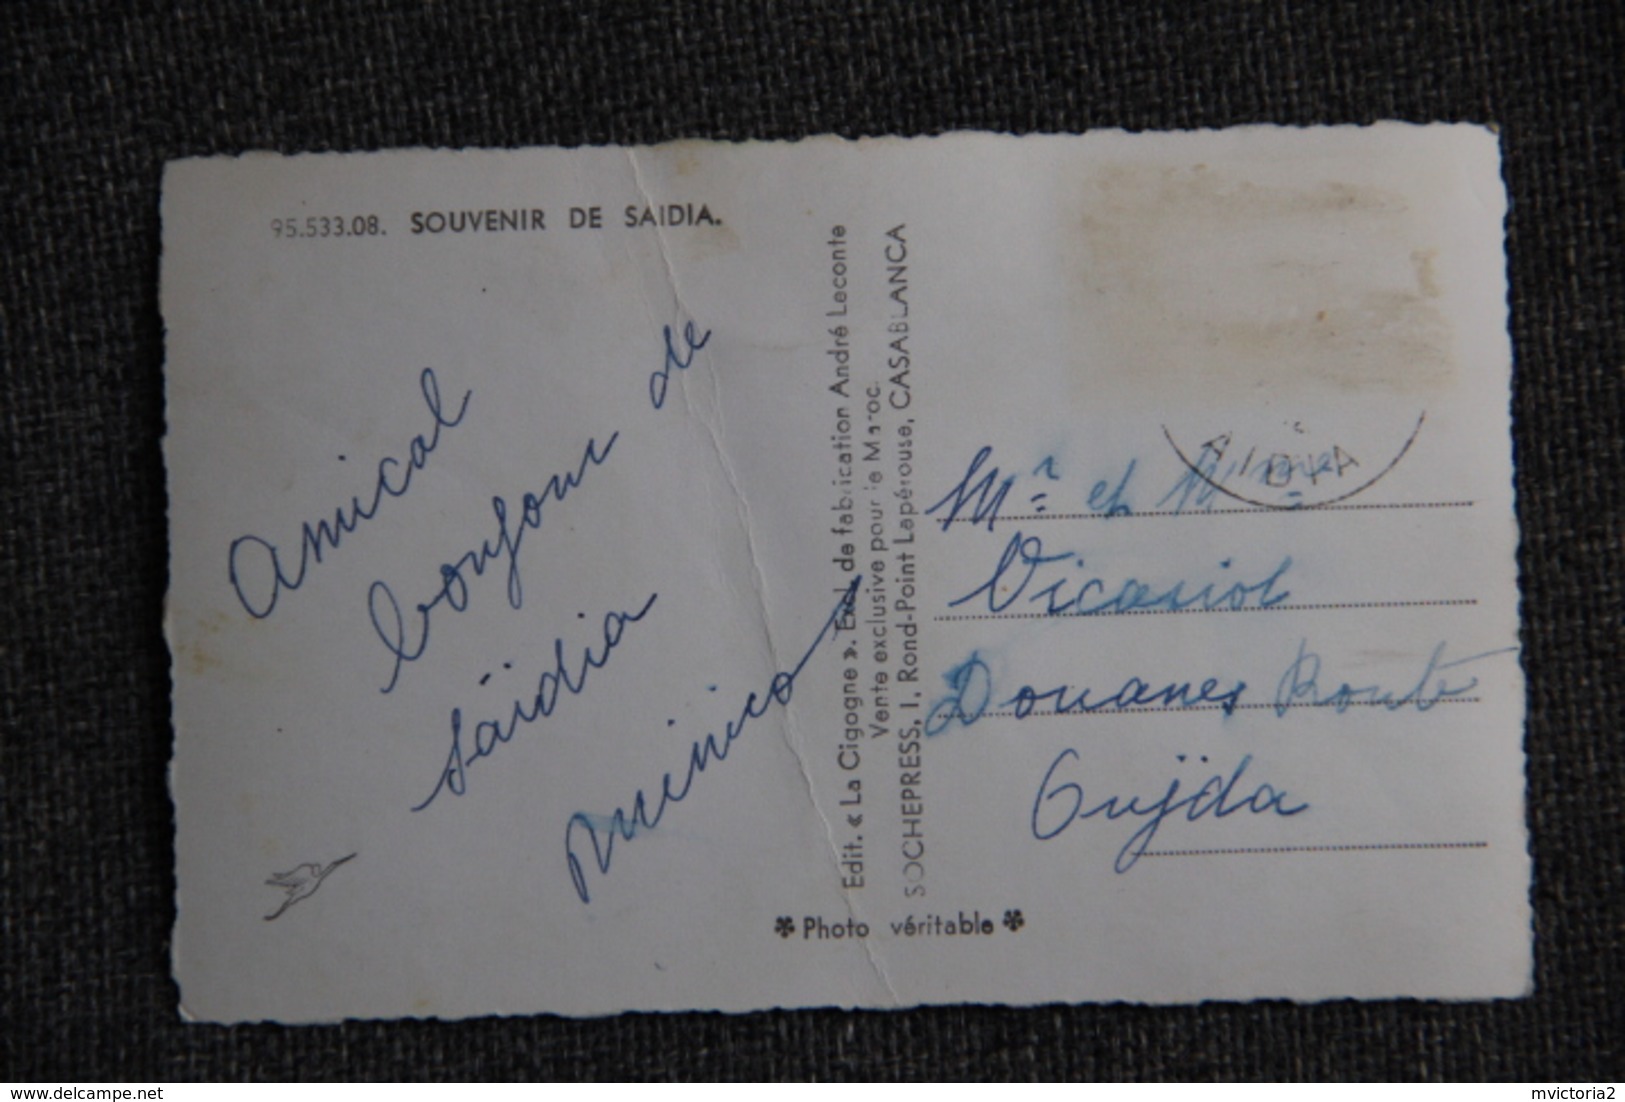 95.533.08. SOUVENIR DE SAIDIA.
Amical
bonjour de
Sáïdia
Edit. « La Cigogne ». Excl. de fabrication André Leconte
Vente exclusive pour le Maroc.
SOCHEPRESS, 1, Rond-Point Lapérouse, CASABLANCA
AIDIA
Mr et Mme
Douanes Route
Oujda
✽ Photo véritable ✽
delcampe.net
mvictoria2